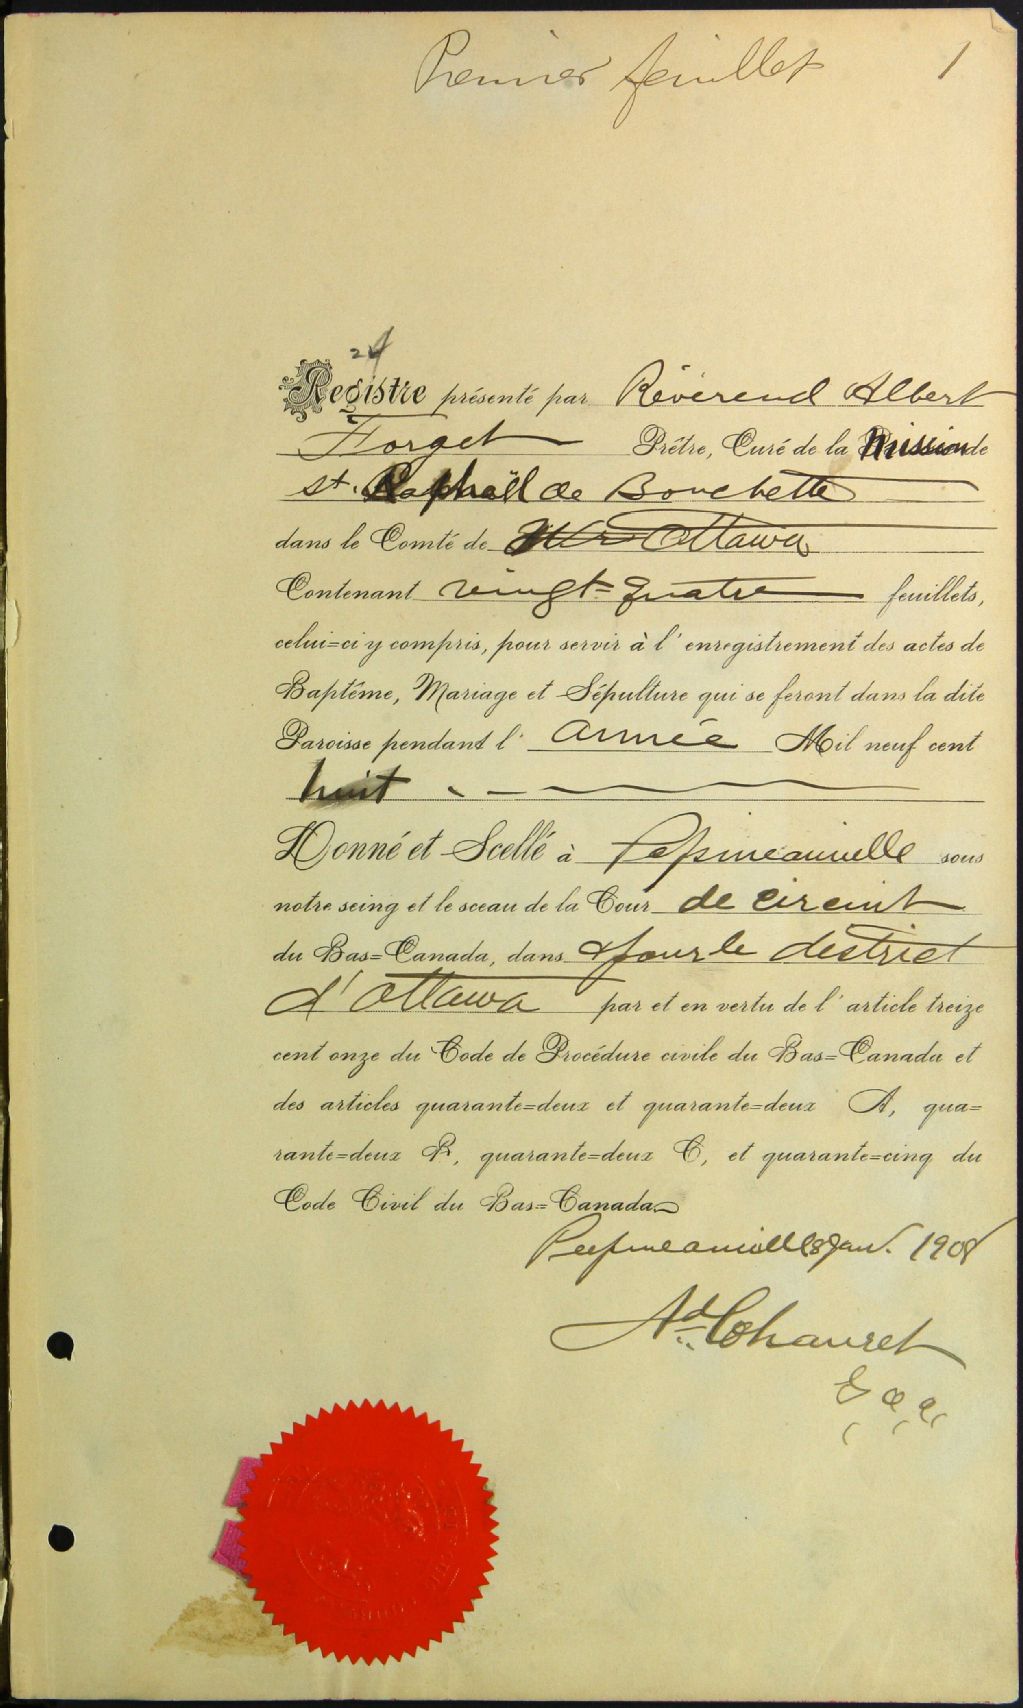 Premier feuillet 1
24
Registre présenté par Révérend Albert
Forget Prêtre, Curé de la Mission de
St. Raphaël de Bouchette
dans le Comté de Ottawa
Contenant vingt-quatre feuillets,
celui=ci y compris, pour servir à l'enregistrement des actes de
Baptême, Mariage et Sépulture qui se feront dans la dite
Paroisse pendant l'année Mil neuf cent
huit
Donné et Scellé à Papineauville sous
notre seing et le sceau de la Cour de circuit
du Bas=Canada, dans & pour le district
d'Ottawa par et en vertu de l'article treize
cent onze du Code de Procédure civile du Bas=Canada et
des articles quarante=deux et quarante=deux A, qua=
rante=deux B, quarante=deux C, et quarante=cinq du
Code Civil du Bas=Canada
Papineauville Jan. 1908
Ad. Chauret